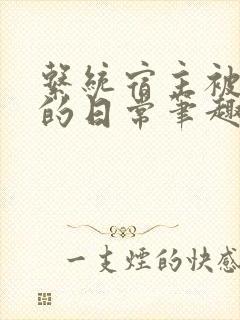 繫統宿主被
的日常筆趣
一支煙的快感